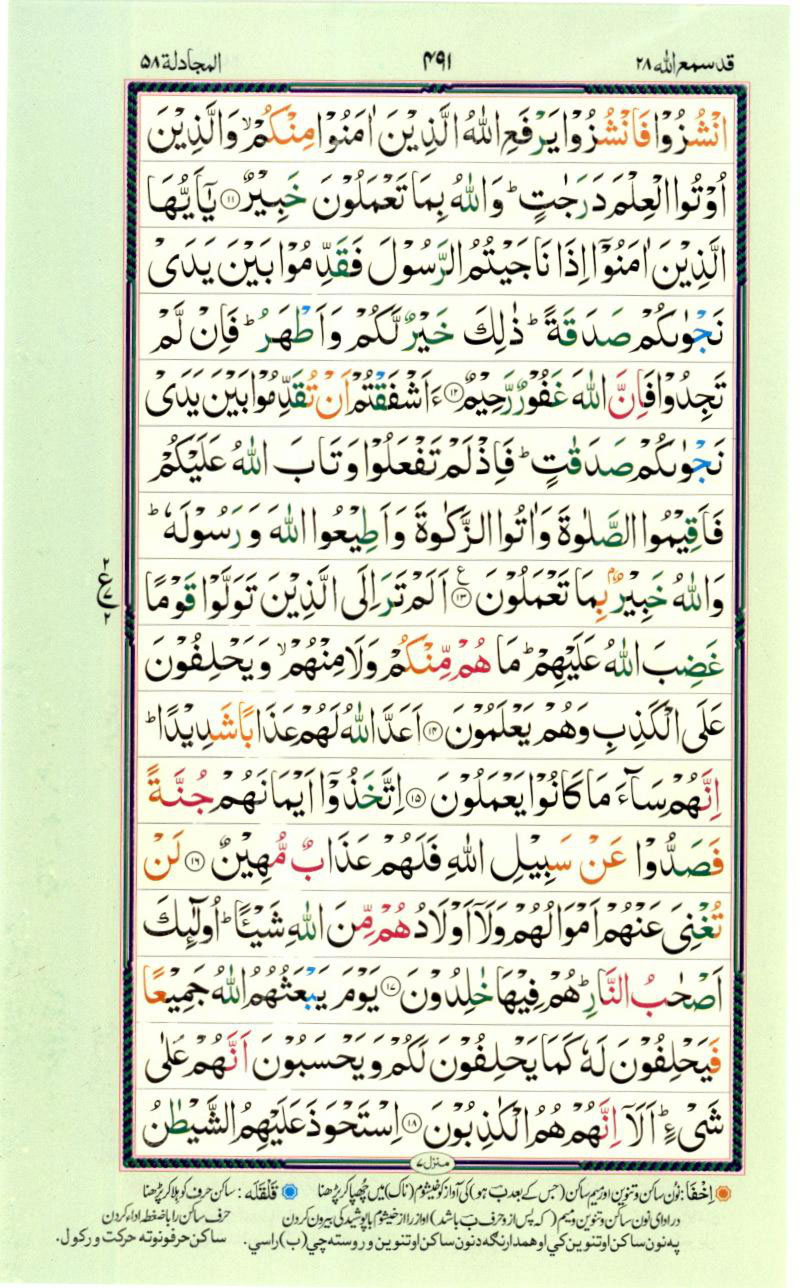 قد سمع الله ۲۸ ۴۹۱ المجادلة ۵۸
انْشُزُوْا فَانْشُزُوْا يَرْفَعِ اللّٰهُ الَّذِيْنَ اٰمَنُوْا مِنْكُمْ ۙ وَالَّذِيْنَ
اُوْتُوا الْعِلْمَ دَرَجٰتٍ ؕ وَاللّٰهُ بِمَا تَعْمَلُوْنَ خَبِيْرٌ ⑪ يٰۤاَيُّهَا
الَّذِيْنَ اٰمَنُوْۤا اِذَا نَاجَيْتُمُ الرَّسُوْلَ فَقَدِّمُوْا بَيْنَ يَدَىْ
نَجْوٰىكُمْ صَدَقَةً ؕ ذٰلِكَ خَيْرٌ لَّكُمْ وَاَطْهَرُ ؕ فَاِنْ لَّمْ
تَجِدُوْا فَاِنَّ اللّٰهَ غَفُوْرٌ رَّحِيْمٌ ⑫ ءَاَشْفَقْتُمْ اَنْ تُقَدِّمُوْا بَيْنَ يَدَىْ
نَجْوٰىكُمْ صَدَقٰتٍ ؕ فَاِذْ لَمْ تَفْعَلُوْا وَتَابَ اللّٰهُ عَلَيْكُمْ
فَاَقِيْمُوا الصَّلٰوةَ وَاٰتُوا الزَّكٰوةَ وَاَطِيْعُوا اللّٰهَ وَرَسُوْلَهٗ ؕ
وَاللّٰهُ خَبِيْرٌۢ بِمَا تَعْمَلُوْنَ ⑬ ع اَلَمْ تَرَ اِلَى الَّذِيْنَ تَوَلَّوْا قَوْمًا
۲ ع ۷ ۲
غَضِبَ اللّٰهُ عَلَيْهِمْ ؕ مَا هُمْ مِّنْكُمْ وَلَا مِنْهُمْ ۙ وَيَحْلِفُوْنَ
عَلَى الْكَذِبِ وَهُمْ يَعْلَمُوْنَ ⑭ اَعَدَّ اللّٰهُ لَهُمْ عَذَابًا شَدِيْدًا ؕ
اِنَّهُمْ سَآءَ مَا كَانُوْا يَعْمَلُوْنَ ⑮ اِتَّخَذُوْۤا اَيْمَانَهُمْ جُنَّةً
فَصَدُّوْا عَنْ سَبِيْلِ اللّٰهِ فَلَهُمْ عَذَابٌ مُّهِيْنٌ ⑯ لَنْ
تُغْنِىَ عَنْهُمْ اَمْوَالُهُمْ وَلَاۤ اَوْلَادُهُمْ مِّنَ اللّٰهِ شَيْـًٔا ؕ اُولٰٓئِكَ
اَصْحٰبُ النَّارِ ؕ هُمْ فِيْهَا خٰلِدُوْنَ ⑰ يَوْمَ يَبْعَثُهُمُ اللّٰهُ جَمِيْعًا
فَيَحْلِفُوْنَ لَهٗ كَمَا يَحْلِفُوْنَ لَكُمْ وَيَحْسَبُوْنَ اَنَّهُمْ عَلٰى
شَىْءٍ ؕ اَلَاۤ اِنَّهُمْ هُمُ الْكٰذِبُوْنَ ⑱ اِسْتَحْوَذَ عَلَيْهِمُ الشَّيْطٰنُ
منزل ۷
اِخْفَا: نون ساکن و تنوین اور میم ساکن (جس کے بعد ب ہو) کی آواز کو خیشوم (ناک) میں چھپا کر پڑھنا قَلْقَلَه: ساکن حرف کو ہلا کر پڑھنا
در ادای نون ساکن و تنوین و میم (که پس از و حرف ب باشد) آواز را از خیشوم با پوشیدگی بیرون کردن حرف ساکن را با ضغط ادا کردن
په نون ساکن او تنوین کې او همدارنګه د نون ساکن او تنوین وروسته چې (ب) راسي. ساکن حرفونو ته حرکت ورکول.